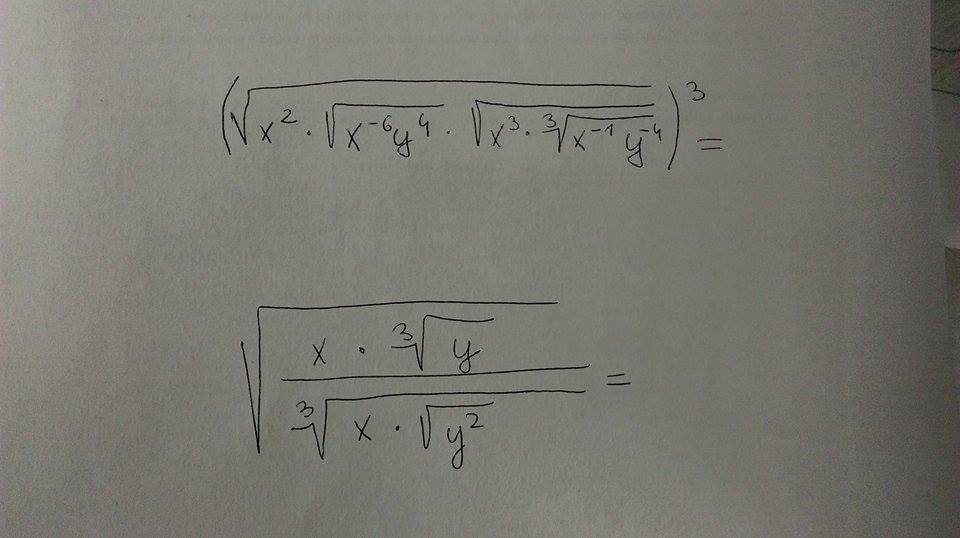 (√(x² · √(x⁻⁶y⁴) · √(x³ · ∛(x⁻¹y⁻⁴))))³ =
√((x · ∛y) / ∛(x · √(y²))) =